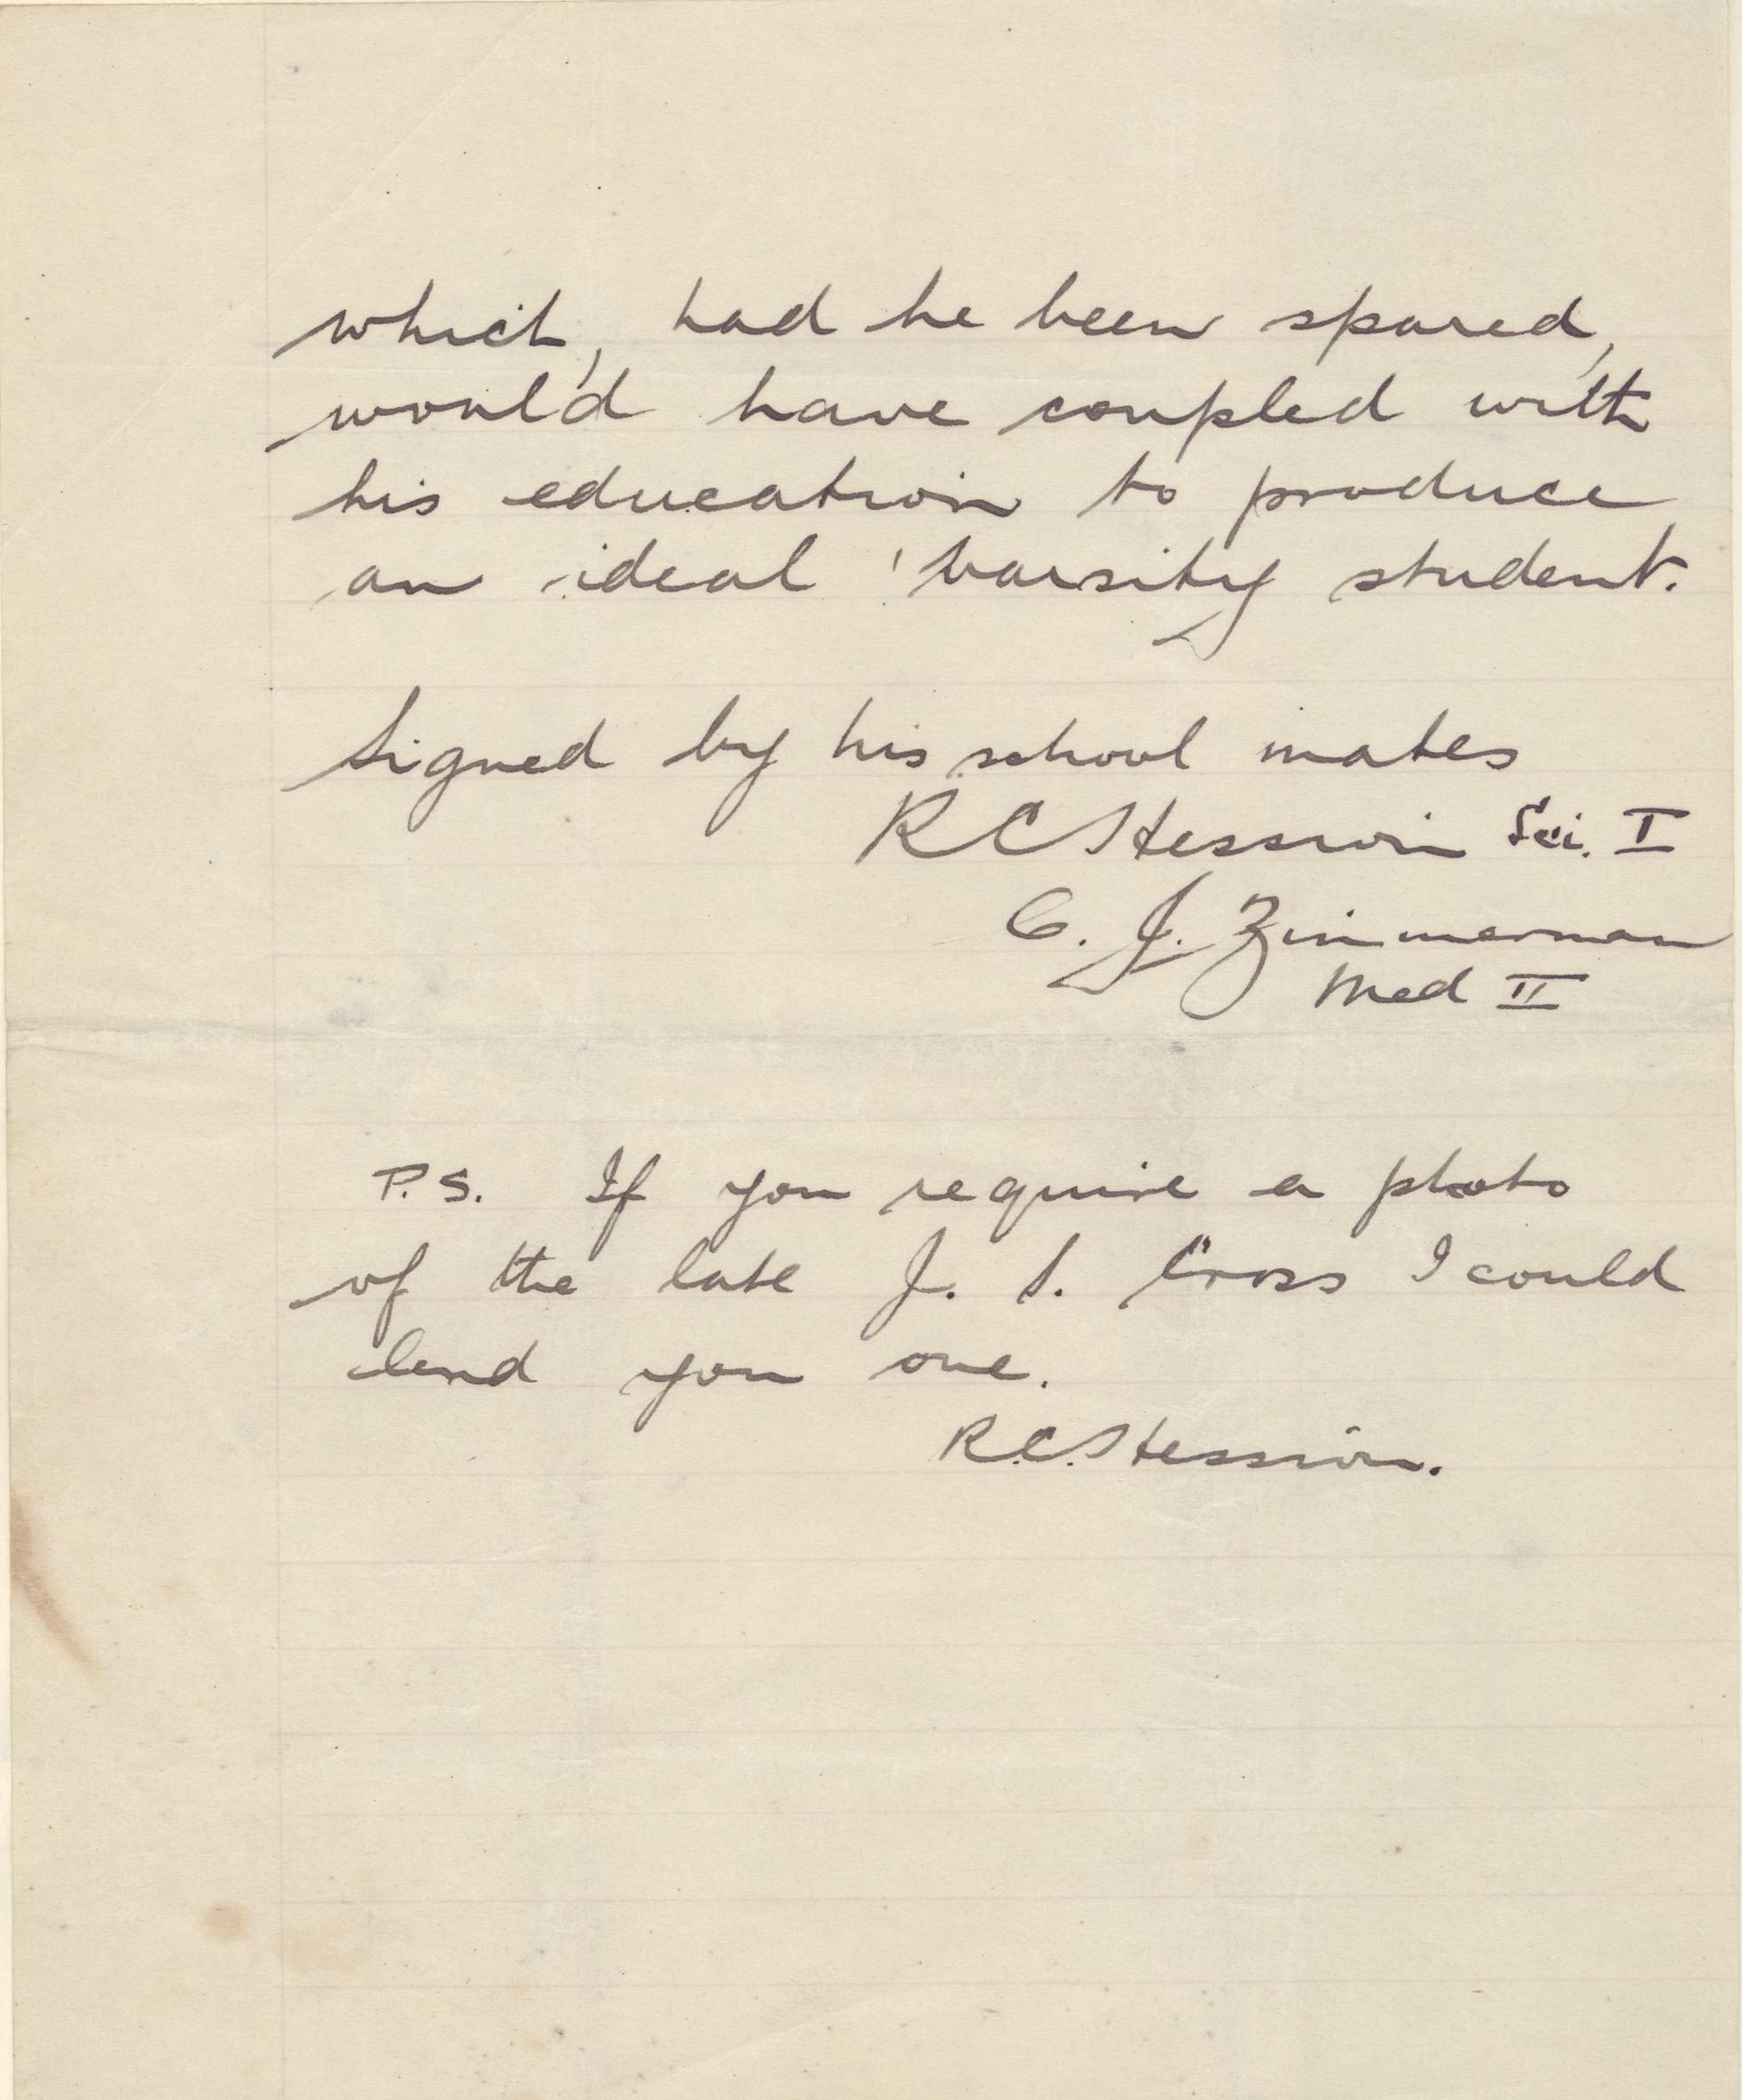 which, had he been spared,
would have coupled with
his education to produce
an ideal 'varsity student.
Signed by his school mates
R C Hession Sci. I
C. J. Zimmerman
Med II
P.S. If you require a photo
of the late J. S. Cross I could
lend you one.
R.C. Hession.